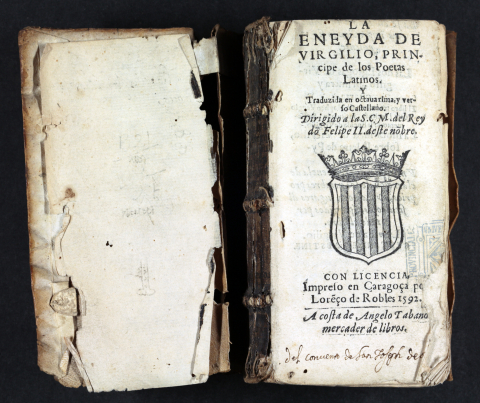 LA
ENEYDA DE
VIRGILIO, PRIN-
cipe de los Poetas
Latinos.
Y
Traduzida en octaua rima, y ver-
so Castellano.
Dirigido a la S.C.M. del Rey
dõ Felipe II. deste nõbre.
CON LICENCIA
Impreso en Caragoça
Lorẽço de Robles 1592.
A costa de Angelo Tabano
mercader de libros.
del convento de San Joseph de